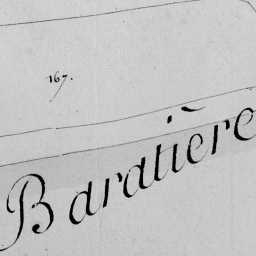 167.
Baratière